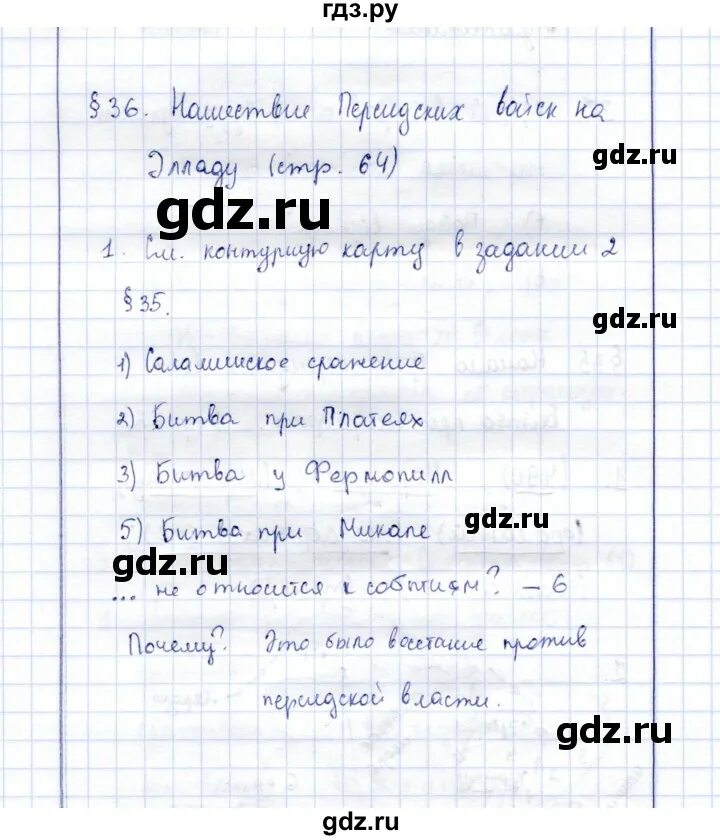 гдз.ру
§ 36. Нашествие Персидских войск на
Элладу (стр. 64)
gdz.ru
gdz.ru
1. См. контурную карту в задании 2
§ 35.
gdz.ru
1) Саламинское сражение
2) Битва при Платеях
gdz.ru
3) Битва у Фермопилл
5) Битва при Микале
gdz.ru
gdz.ru
... не относится к событиям? – 6
Почему? Это было восстание против
персидской власти.
gdz.ru
gdz.ru